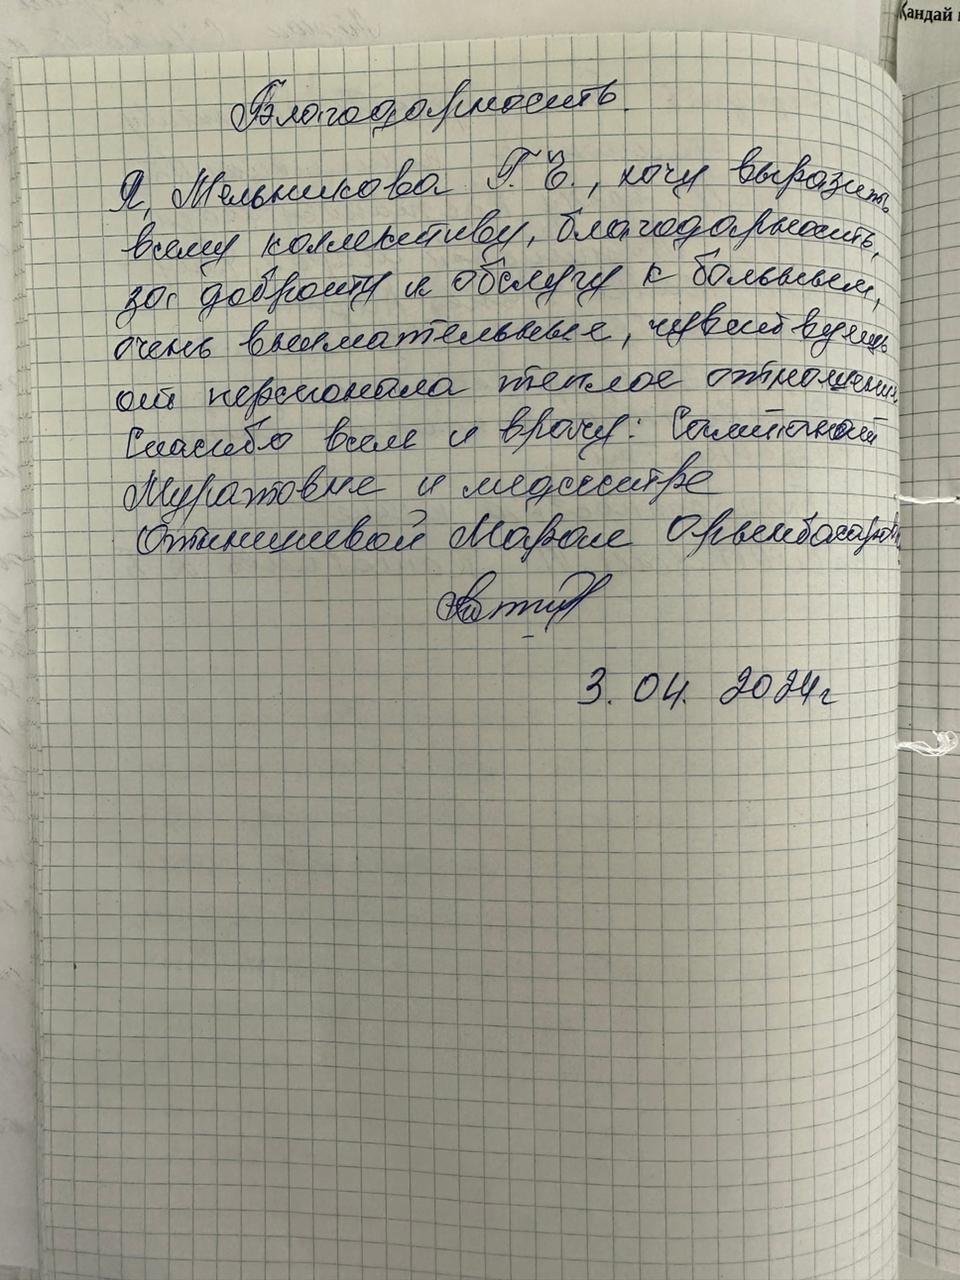 Қандай
Благодарность.
Я, Мельникова Г. Е., хочу выразить
всему коллективу, благодарность,
за доброту и обслугу к больным,
очень внимательные, чувствуешь
от персонала теплое отношение
Спасибо всем и врачу: Салтанат
Муратовне и медсестре
Отыншиевой Марал Орынбасаровн
3. 04. 2024г